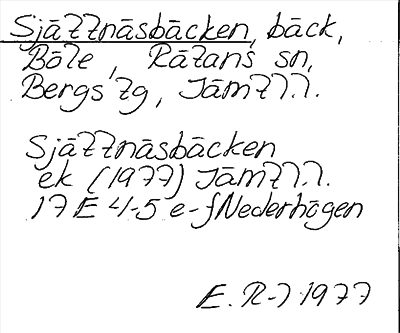 Sjättnäsbäcken, bäck,
Böle, Rätans sn,
Bergs tg, Jämtl.
Sjättnäsbäcken
ek (1977) Jämtl.
17 E 4-5 e-f Nederhögen
E. R-) 1977